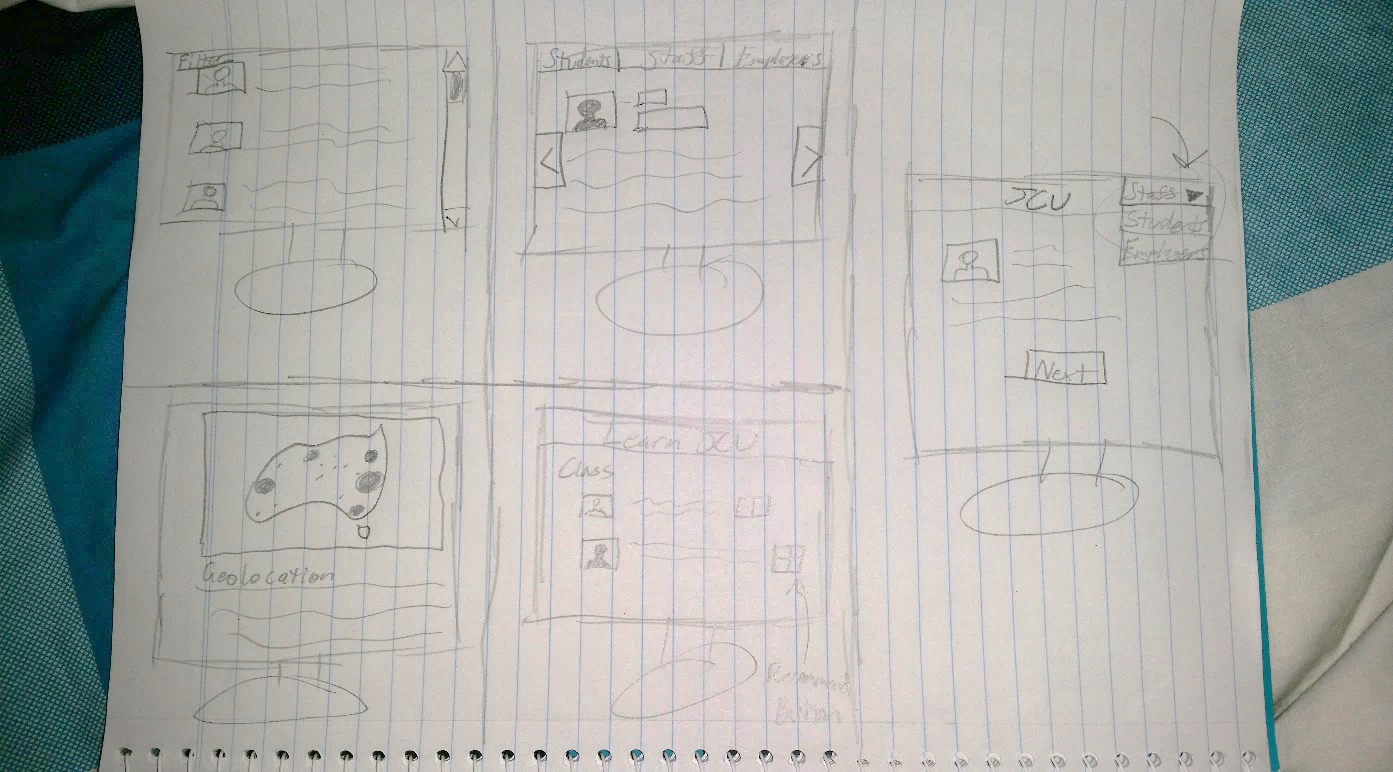 Filter
Students Staff Employers
JCU
Staff
Students
Employers
Next
Geolocation
Learn JCU
Class
Recommend
Button